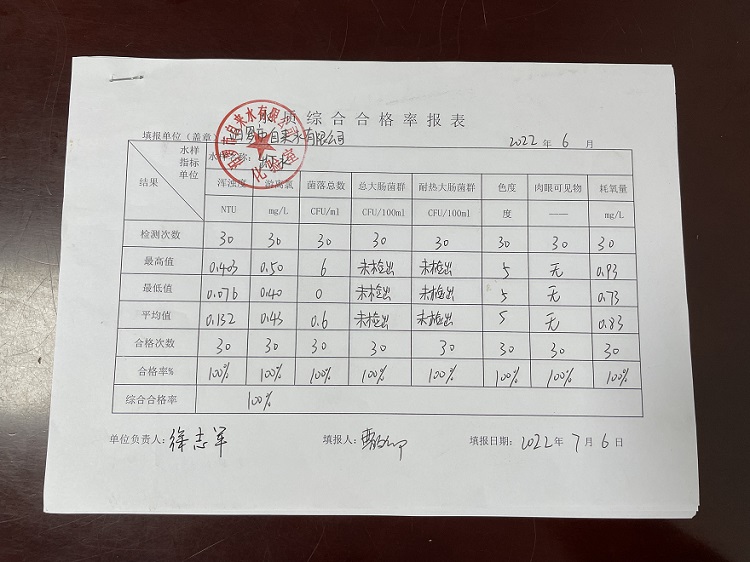 水质综合合格率报表
填报单位（盖章） 市自来水有限公司 2022年6月
市自来水有限公司
化验室
水样 水样名称：
指标
单位
结果
浑浊度 游离氯 菌落总数 总大肠菌群 耐热大肠菌群 色度 肉眼可见物 耗氧量
NTU mg/L CFU/ml CFU/100ml CFU/100ml 度 —— mg/L
检测次数 30 30 30 30 30 30 30 30
最高值 0.403 0.50 6 未检出 未检出 5 无 0.93
最低值 0.076 0.40 0 未检出 未检出 5 无 0.73
平均值 0.132 0.43 0.6 未检出 未检出 5 无 0.83
合格次数 30 30 30 30 30 30 30 30
合格率% 100% 100% 100% 100% 100% 100% 100% 100%
综合合格率 100%
单位负责人：徐志军 填报人： 填报日期：2022年7月6日